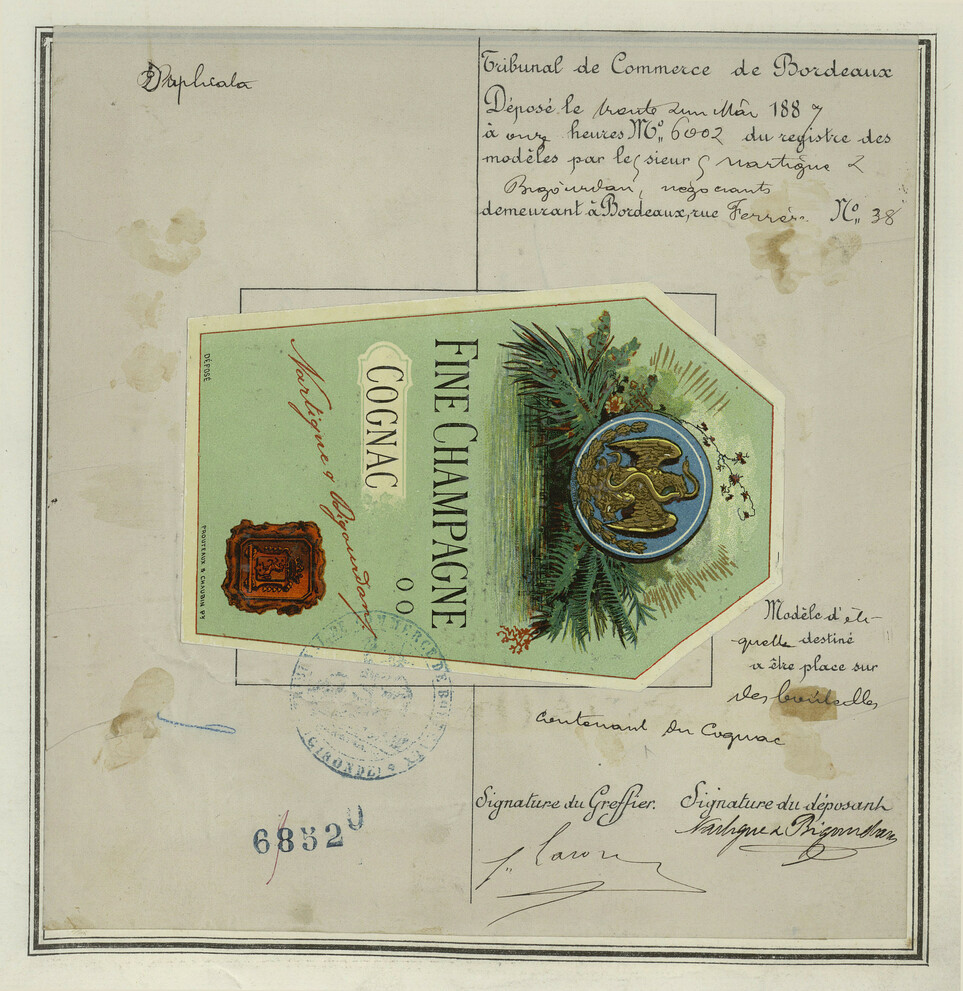 Duplicata
Tribunal de Commerce de Bordeaux
Déposé le trente un Mai 1887
à onze heures No. 6002 du registre des
modèles par les sieurs Nartigue &
Bigourdan, négociants
demeurant à Bordeaux, rue Ferrère. No. 38
FINE CHAMPAGNE
COGNAC
OO
Nartigue & Bigourdan
DÉPOSÉ
TROUTEAUX & CHAUBIN PX
Modèle d'éti-
quette destiné
a être place sur
des bouteilles
contenant du Cognac
COMMERCE DE BORDEAUX
(GIRONDE)
Signature du Greffier. Signature du déposant
Nartigue & Bigourdan
68520